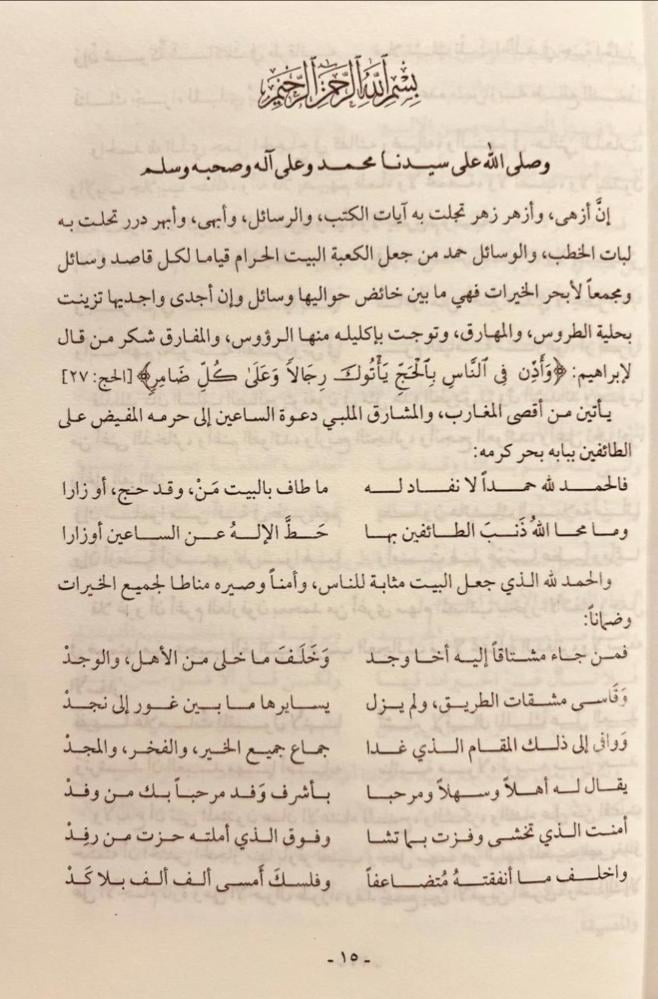 بسم الله الرحمن الرحيم
وصلى الله على سيدنا محمد وعلى آله وصحبه وسلم
إنَّ أزهى، وأزهر زهر تجلت به آيات الكتب، والرسائل، وأبهى، وأبهر درر تحلت به
لبات الخطب، والوسائل حمد من جعل الكعبة البيت الحرام قياما لكل قاصد وسائل
ومجمعاً لأبحر الخيرات فهي ما بين خائض حواليها وسائل وإن أجدى واجديها تزينت
بحلية الطروس، والمهارق، وتوجت بإكليله منها الرؤوس، والمفارق شكر من قال
لإبراهيم: ﴿وَأَذِّن فِى ٱلنَّاسِ بِٱلْحَجِّ يَأْتُوكَ رِجَالاً وَعَلَىٰ كُلِّ ضَامِرٍ﴾ [الحج: ٢٧]
يأتين من أقصى المغارب، والمشارق الملبي دعوة الساعين إلى حرمه المفيض على
الطائفين ببابه بحر كرمه:
فالحمد لله حمداً لا نفاد له ما طاف بالبيت مَنْ، وقد حج، أو زارا
وما محا اللهُ ذَنبَ الطائفين بها حَطَّ الإلهُ عن الساعين أوزارا
والحمد لله الذي جعل البيت مثابة للناس، وأمناً وصيره مناطا لجميع الخيرات
وضماناً:
فمن جاء مشتاقاً إليه أخا وجد وَخَلَفَ ما خلى من الأهل، والوجدْ
وَقَاسى مشقات الطريق، ولم يزل يسايرها ما بين غور إلى نجدْ
وَوافى إلى ذلك المقام الذي غدا جماع جميع الخير، والفخر، والمجدْ
يقال له أهلاً وسهلاً ومرحبا بأشرف وَفد مرحباً بك من وفدْ
أمنت الذي تخشى وفزت بما تشا وفوق الذي أملته حزت من رفِدْ
واخلف ما أنفقتهُ مُتضاعفاً وفلسكَ أَمسى ألف ألف بلا كَدْ
- ١٥ -